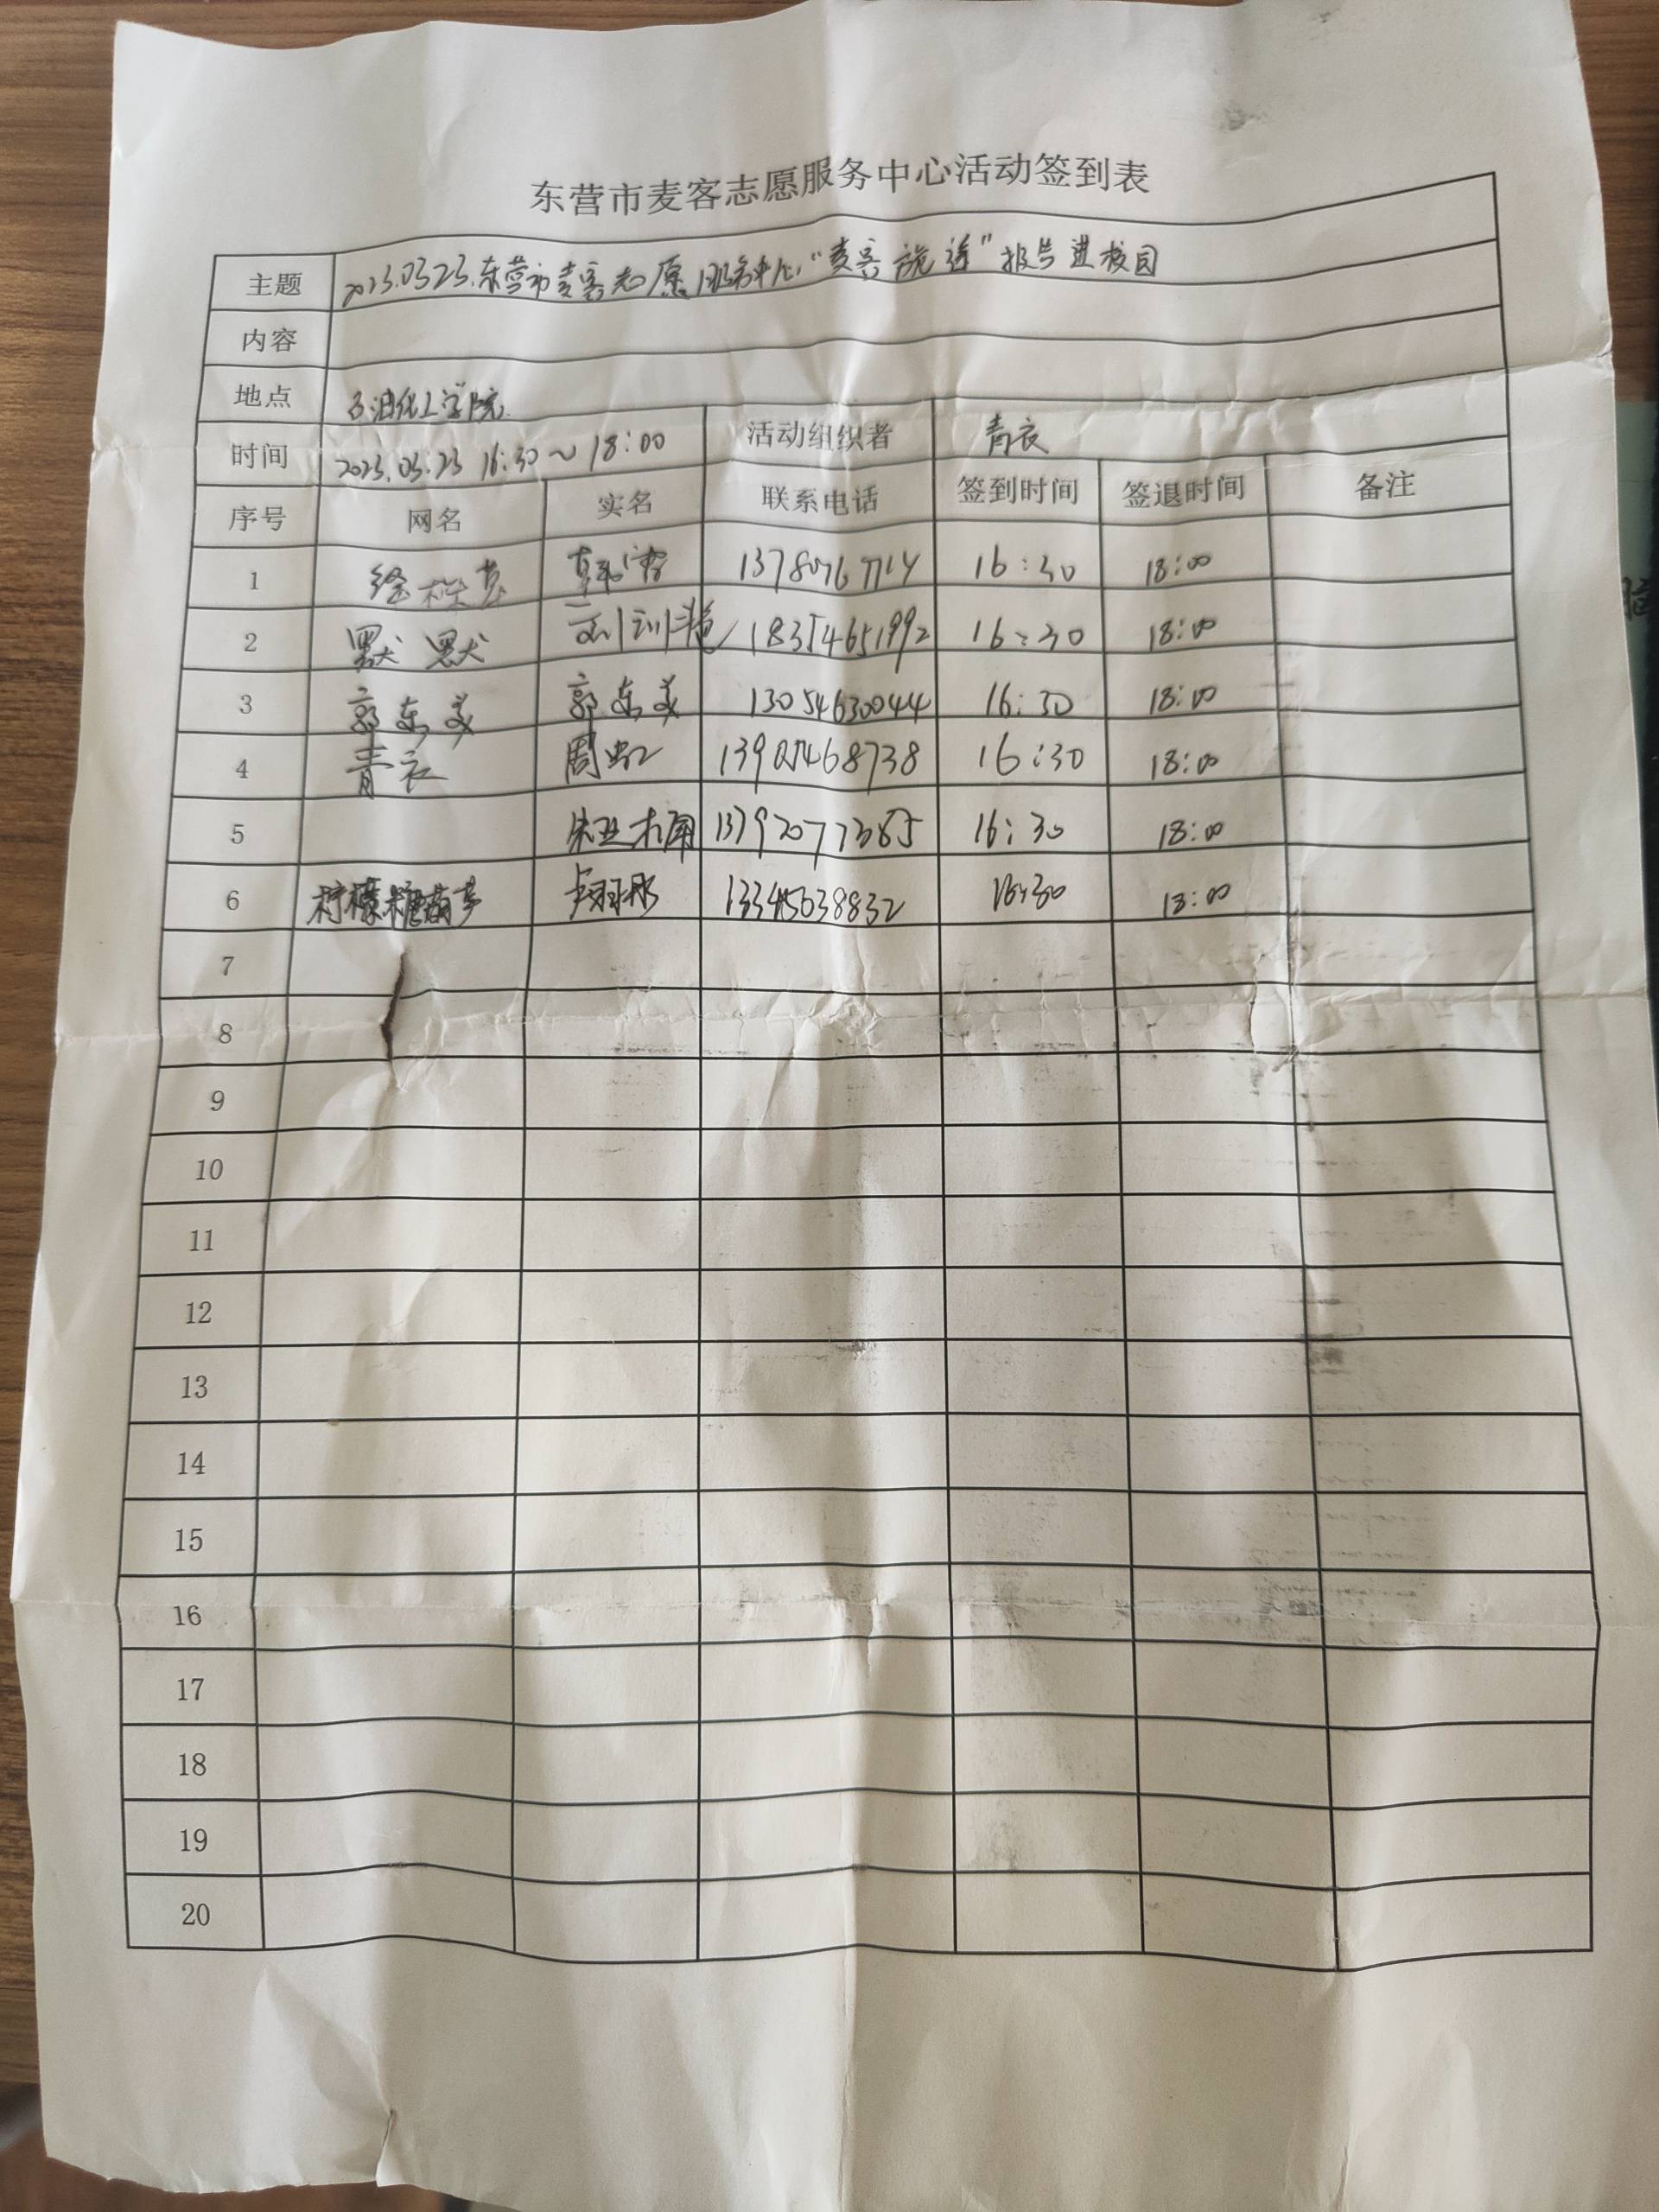 东营市麦客志愿服务中心活动签到表
主题 2023.03.23.东营市麦客志愿服务中心"麦客" 报告进校园
内容
地点 石油化工学院
时间 2023.03.23 16:30～18:00 活动组织者 青衣
序号 网名 实名 联系电话 签到时间 签退时间 备注
1 16:30 18:00
2 默默 18354651992 16:30 18:00
3 郭东美 郭东美 13054630044 16:30 18:00
4 青衣 周虹 13905468738 16:30 18:00
5 16:30 18:00
6 柠檬糖葫芦 13345038832 16:30 18:00
7
8
9
10
11
12
13
14
15
16
17
18
19
20